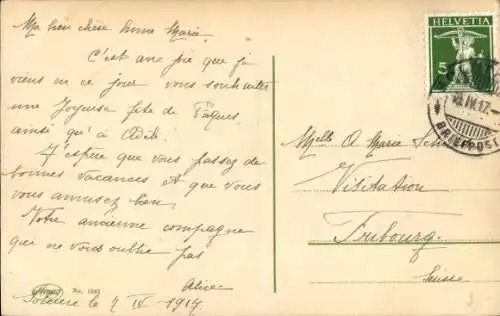 Ma bien chère bonne Maria
C'est une joie que je
viens en ce jour vous souhaiter
une Joyeuse fête de Pâques,
ainsi qu'à Adèle.
J'espère que vous passez de
bonnes vacances et que vous
vous amusez bien.
Votre ancienne compagne
qui ne vous oublie pas
Alice
Soleure le 7 IV 1917
No.
HELVETIA
5
IV.17.
BRIEFPOST
Mlle A Marie
Visitation
Fribourg.
Suisse